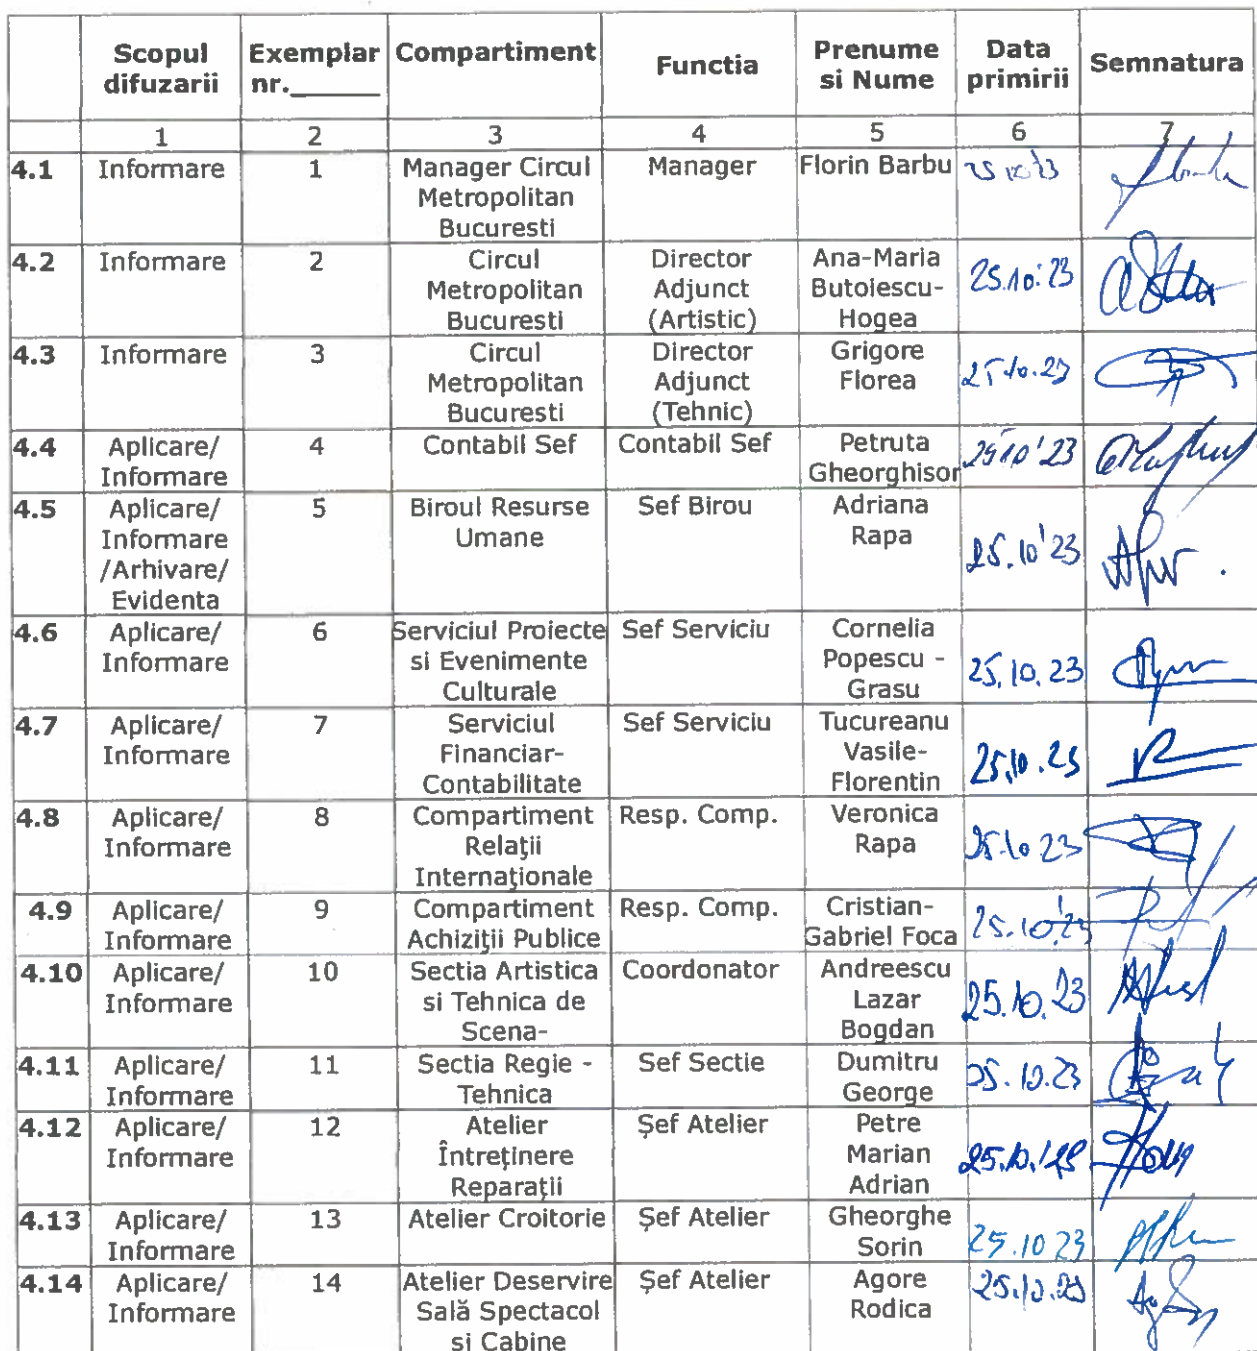 Scopul difuzarii | Exemplar nr.______ | Compartiment | Functia | Prenume si Nume | Data primirii | Semnatura
1 | 2 | 3 | 4 | 5 | 6 | 7
4.1 | Informare | 1 | Manager Circul Metropolitan Bucuresti | Manager | Florin Barbu | 25 10'23
4.2 | Informare | 2 | Circul Metropolitan Bucuresti | Director Adjunct (Artistic) | Ana-Maria Butoiescu-Hogea | 25.10.23
4.3 | Informare | 3 | Circul Metropolitan Bucuresti | Director Adjunct (Tehnic) | Grigore Florea | 25.10.23
4.4 | Aplicare/ Informare | 4 | Contabil Sef | Contabil Sef | Petruta Gheorghisor | 25 10'23
4.5 | Aplicare/ Informare /Arhivare/ Evidenta | 5 | Biroul Resurse Umane | Sef Birou | Adriana Rapa | 25.10'23
4.6 | Aplicare/ Informare | 6 | Serviciul Proiecte si Evenimente Culturale | Sef Serviciu | Cornelia Popescu - Grasu | 25.10.23
4.7 | Aplicare/ Informare | 7 | Serviciul Financiar-Contabilitate | Sef Serviciu | Tucureanu Vasile-Florentin | 25.10.23
4.8 | Aplicare/ Informare | 8 | Compartiment Relaţii Internaţionale | Resp. Comp. | Veronica Rapa | 25.10 23
4.9 | Aplicare/ Informare | 9 | Compartiment Achiziţii Publice | Resp. Comp. | Cristian-Gabriel Foca | 25.10'23
4.10 | Aplicare/ Informare | 10 | Sectia Artistica si Tehnica de Scena- | Coordonator | Andreescu Lazar Bogdan | 25.10.23
4.11 | Aplicare/ Informare | 11 | Sectia Regie - Tehnica | Sef Sectie | Dumitru George | 25.10.23
4.12 | Aplicare/ Informare | 12 | Atelier Întreţinere Reparaţii | Şef Atelier | Petre Marian Adrian | 25.10.'23
4.13 | Aplicare/ Informare | 13 | Atelier Croitorie | Şef Atelier | Gheorghe Sorin | 25.10 23
4.14 | Aplicare/ Informare | 14 | Atelier Deservire Sală Spectacol si Cabine | Şef Atelier | Agore Rodica | 25.10.23